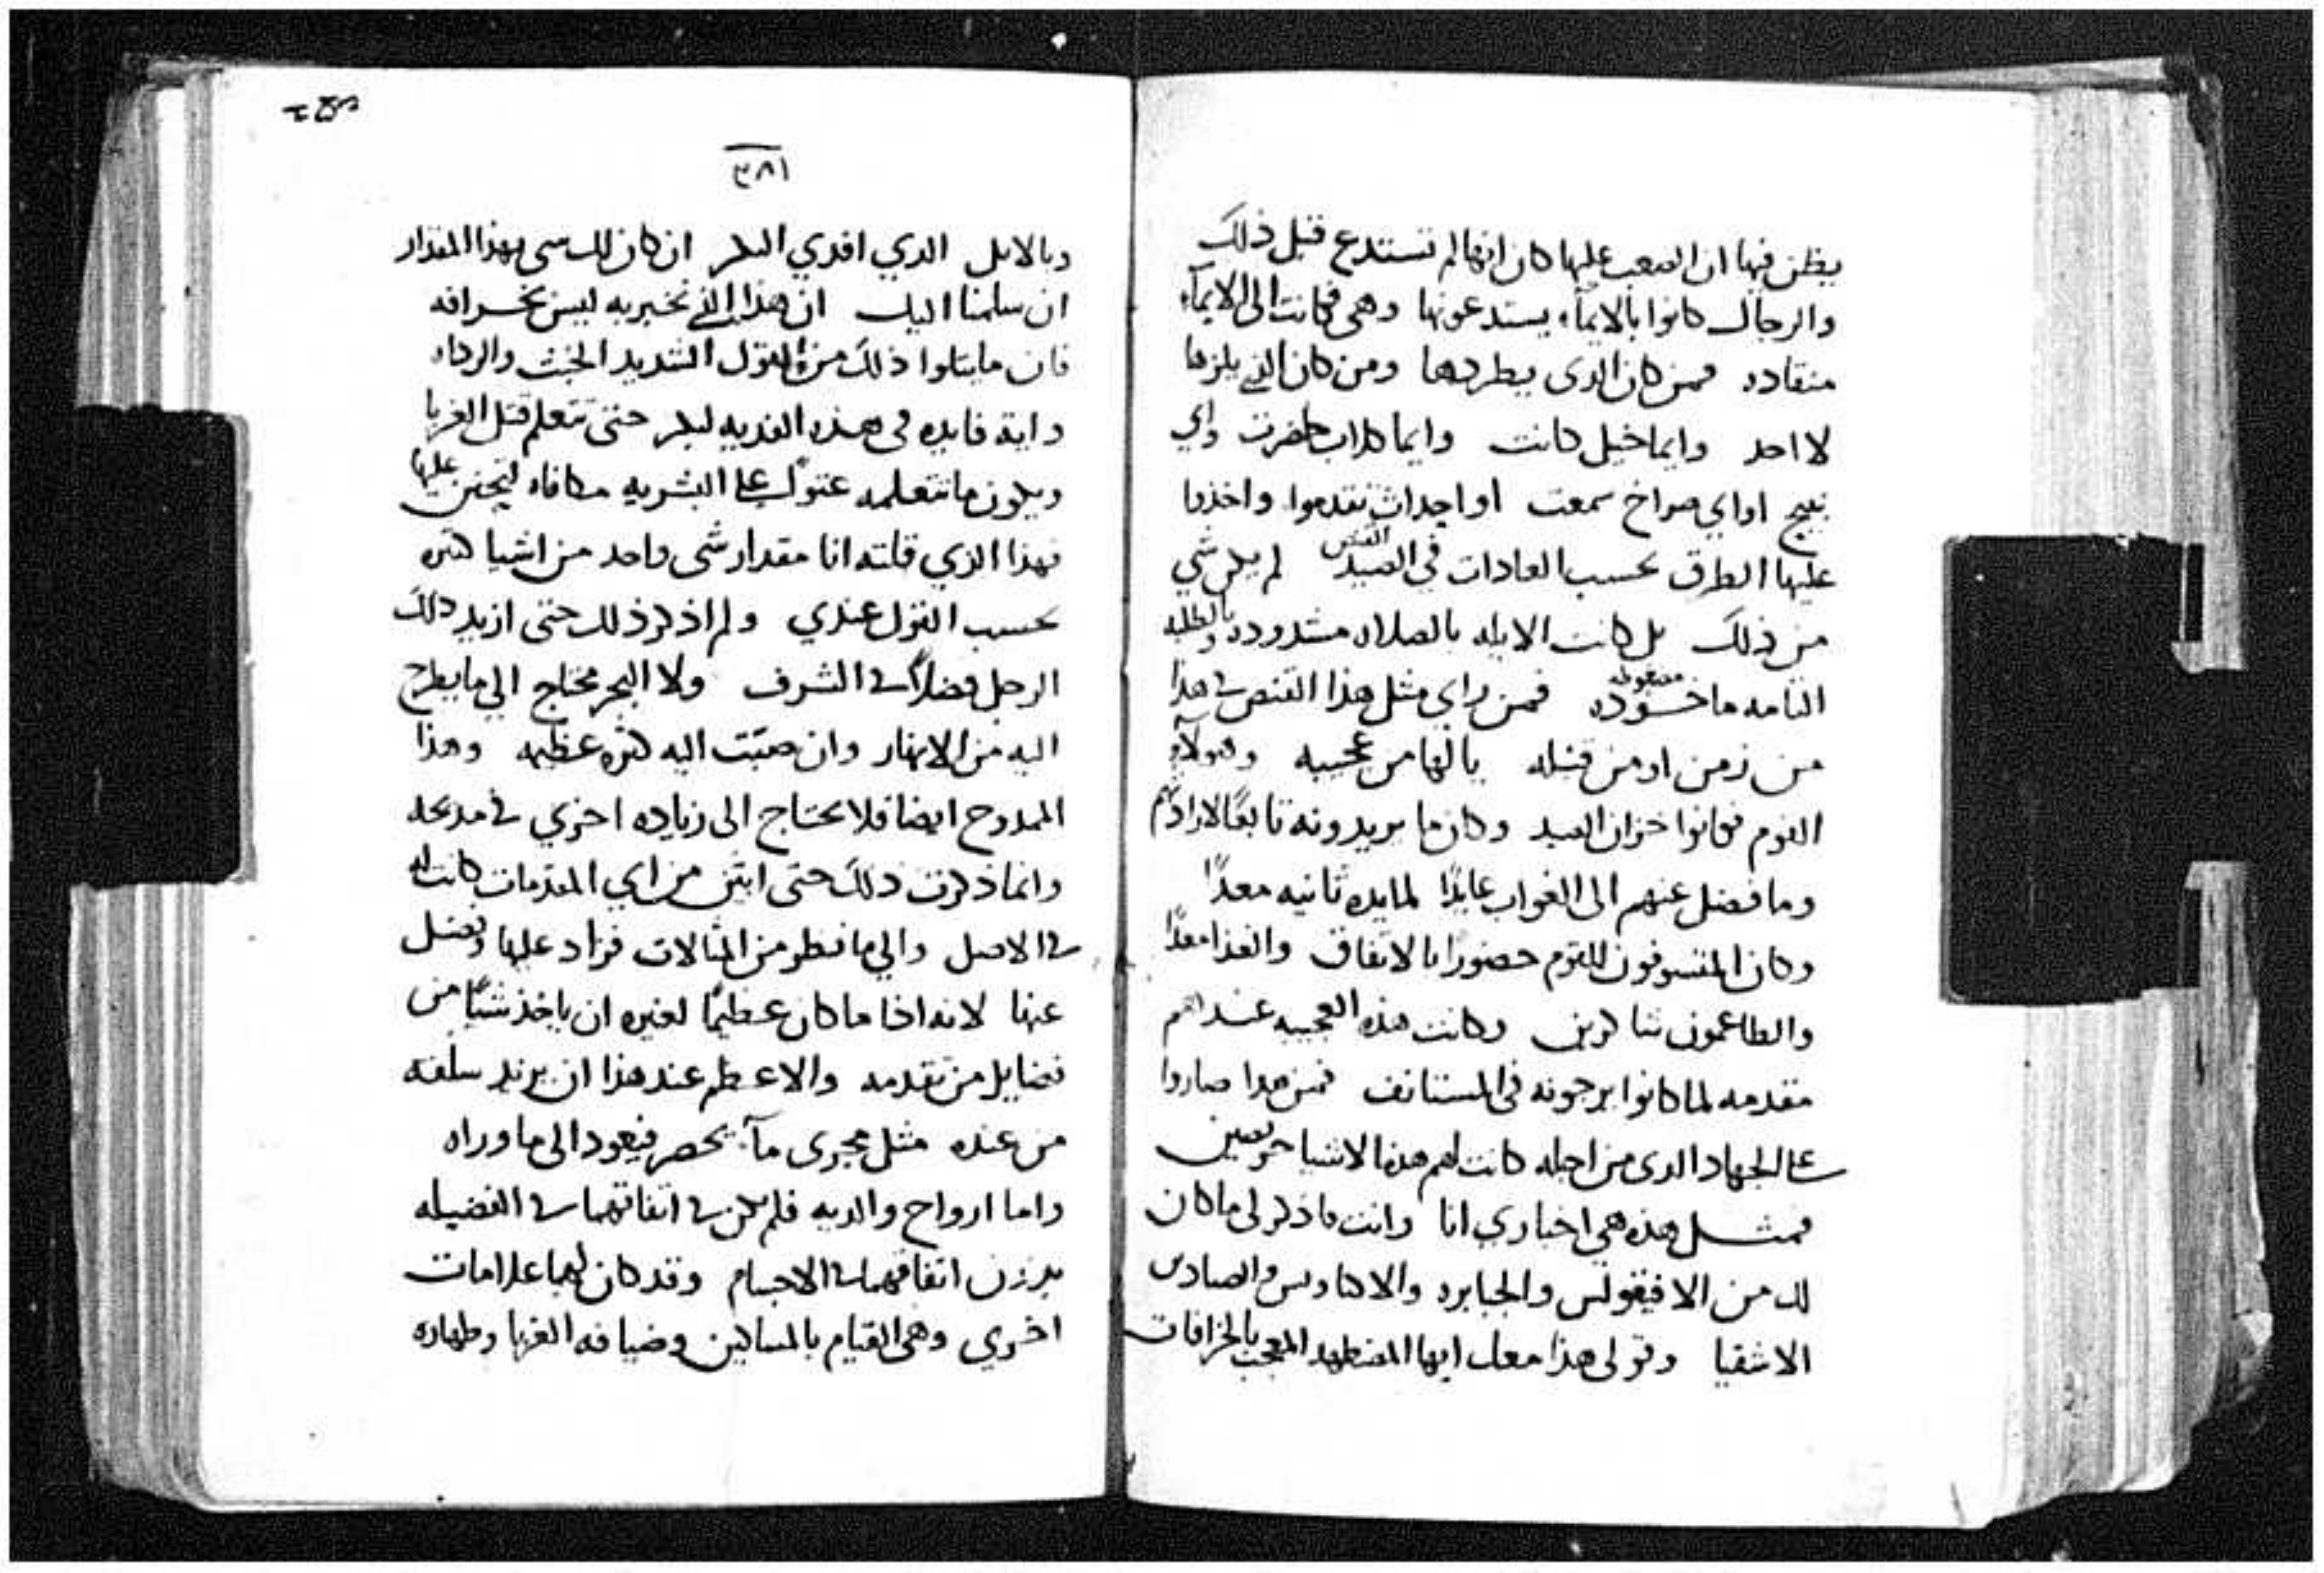 يظن فيها ان الصعب عليها كان انها لم تستدع قبل ذلك
والرجال كانوا بالايماء يستدعونها وهى فكانت الى الايماء
منقاده فمن كان الدى يطردها ومن كان الذي يلزها
لا احد وايما خيل كانت وايما كلاب حضرت واي
نبيح او اي صراخ سمعت او احداث تقدموا واخذوا
عليها الطرق بحسب العادات في الصيد القنص لم يكن شي
من ذلك بل كانت الايله بالصلاه مشدوده وبالطلبه
التامه ماخوده معقوله فمن راي مثل هذا القنص في هدا
من زمن او من قبله يا لها من عجيبه وهولاء
القوم فكانوا خزان الصيد وكان ما يريدونه تابعًا لارادتهم
وما فضل عنهم الى الغواب عايدًا لمايده ثانيه معدًا
وكان المتسوفون للقوم حضورًا بالاتفاق والغذا معدًا
والطاعمون شاكرين وكانت هذه العجيبه عندهم
مقدمه لما كانوا يرجونه في المستانف فمن هدا صاروا
على الجهاد الدى من اجله كانت لهم هذه الاشيا حريصين
فمثل هذه هي اخباري انا وانت فاذكر لى ما كان
لك من الافيقولس والجبابره والصيادين
الاشقيا وقولى هذا معك ايها المضطهد المعجب بالخرافات
٣٨١
وبالايل الدي افدي البكر ان كان لك شي بهذا المقدار
ان سلمنا اليك ان هذا الذي نخبر به ليس بخرافه
فان ما يتلوا ذلك من القول الشديد الخبث والرداه
واية فايده فى هذه الفديه لبكر حتى تتعلم قتل الغربا
ويكون ما تتعلمه عتوًا على البشريه مكافاه ليحنن عليها
فهذا الذي قلته انا مقدار شى واحد من اشيا كثره
بحسب القول عندي ولم اذكر ذلك حتى ازيد ذلك
الرجل فضلاً في الشرف ولا البحر محتاج الي ما يطرح
اليه من الانهار وان صبّت اليه كثره عظيمه وهذا
الممدوح ايضا فلا يحتاج الى زياده اخري في مديحه
وانما ذكرت ذلك حتى ابين من اي المقدمات كانت له
في الاصل والي ما نظر من المثالات فزاد عليها وفضل
عنها لانه اذا ما كان عظيمًا لغيره ان ياخذ شيًا من
فضايل من تقدمه والاعظم عند هذا ان يزيد سلفه
من عنده مثل مجرى مآء يحصر فيعود الى ما وراه
واما ارواح والديه فلم يكن في اتفاقهما في الفضيله
بدون اتفاقهما في الاجسام وقد كان لهما علامات
اخري وهى القيام بالمساكين وضيافه الغربا وطهاره